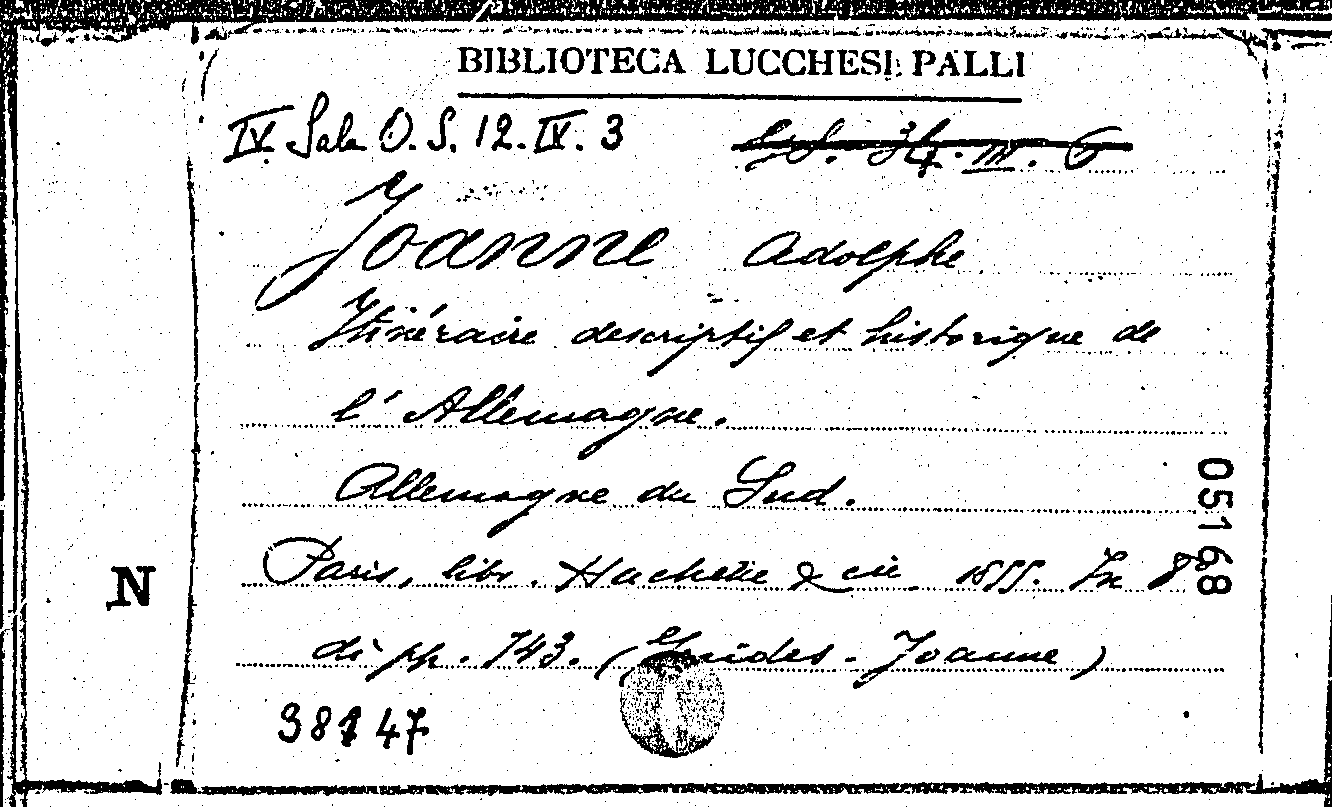 BIBLIOTECA LUCCHESI PALLI
IV. Sala O. S. 12. IV. 3
34. III. 6
Joanne Adolphe
Itinéraire descriptif et historique de
l'Allemagne.
Allemagne du Sud.
Paris, libr. Hachette & cie 1855. In 8º
di pp. 743. (Guides-Joanne)
05168
N
38147